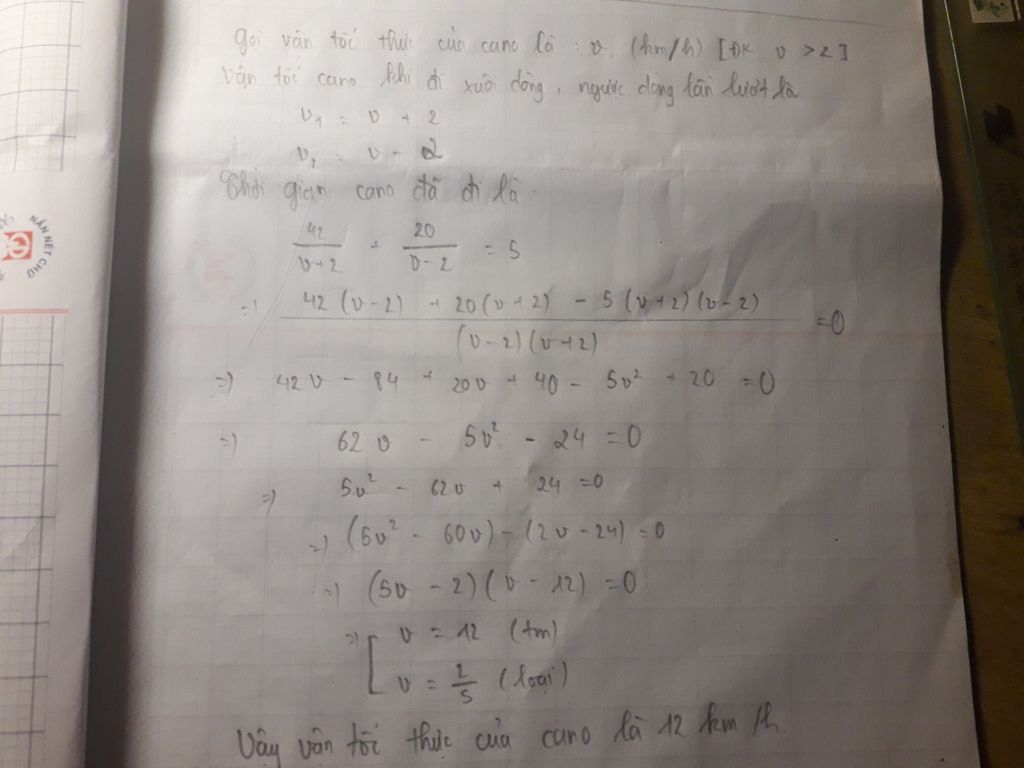 Gọi vận tốc thực của cano là : v. (km/h) [ĐK v > 2]
Vận tốc cano khi đi xuôi dòng, ngược dòng lần lượt là
v₁ = v + 2
v₂ = v - 2
Thời gian cano đã đi là.
42/(v+2) + 20/(v-2) = 5
=> (42(v-2) + 20(v+2) - 5(v+2)(v-2))/((v-2)(v+2)) = 0
=> 42v - 84 + 20v + 40 - 5v² + 20 = 0
=> 62v - 5v² - 24 = 0
=> 5v² - 62v + 24 = 0
=> (5v² - 60v) - (2v - 24) = 0
=> (5v - 2)(v - 12) = 0
=> [ v = 12 (tm)
v = 2/5 (loại)
Vậy vận tốc thực của cano là 12 km/h.
NẮN NÉT CHỮ